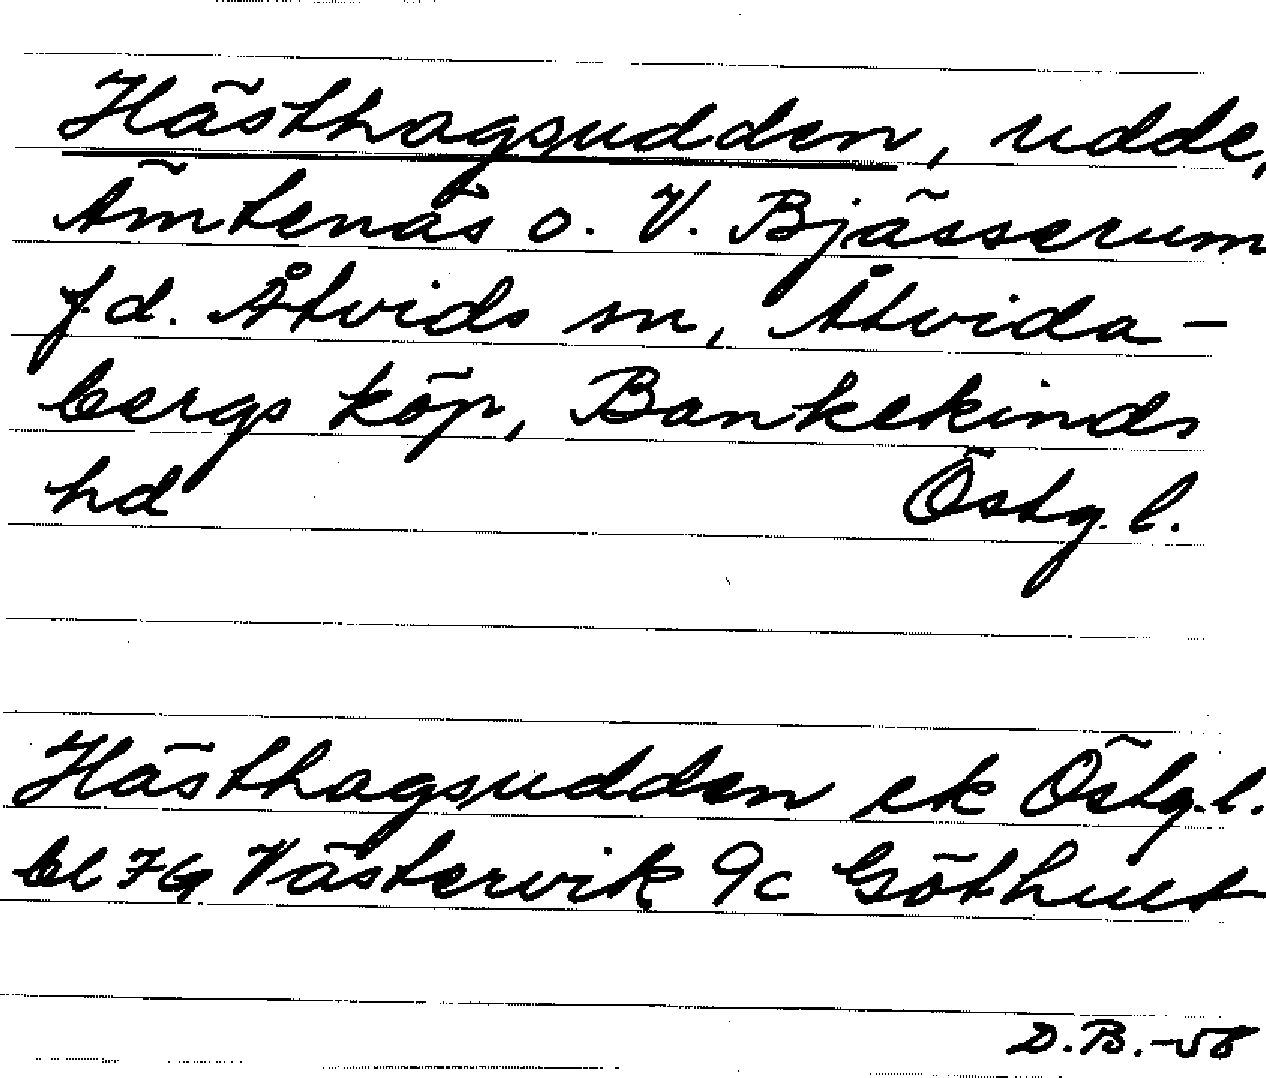 Hästhagsudden, udde,
Ämtenäs o. V. Bjässerum
f.d. Åtvids sn, Åtvida-
bergs köp, Bankekinds
hd Östg. l.
Hästhagsudden ek Östg. l.
bl 7G Västervik 9c Göthult
D.B.-58